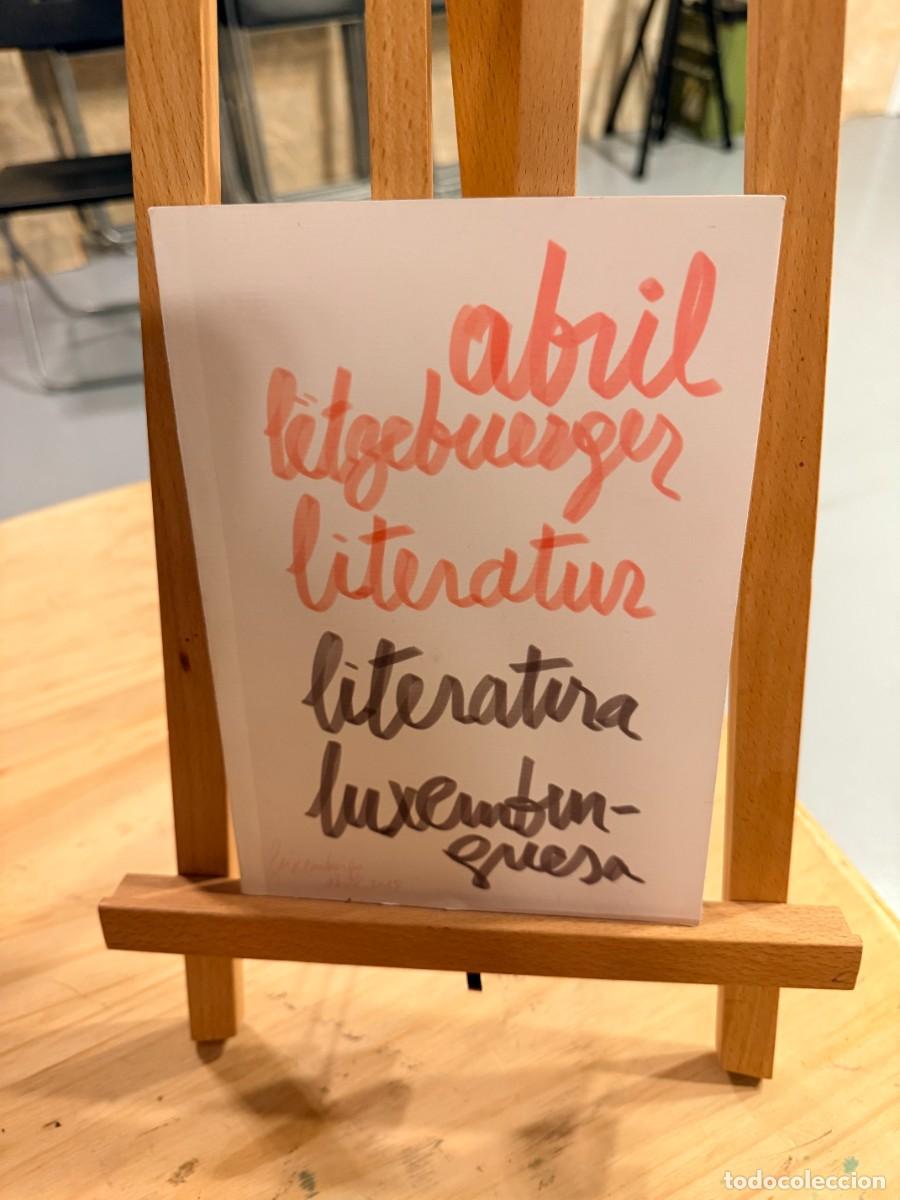 abril
lëtzebuerger
literatur
literatura
luxembur-
guesa
todocoleccion